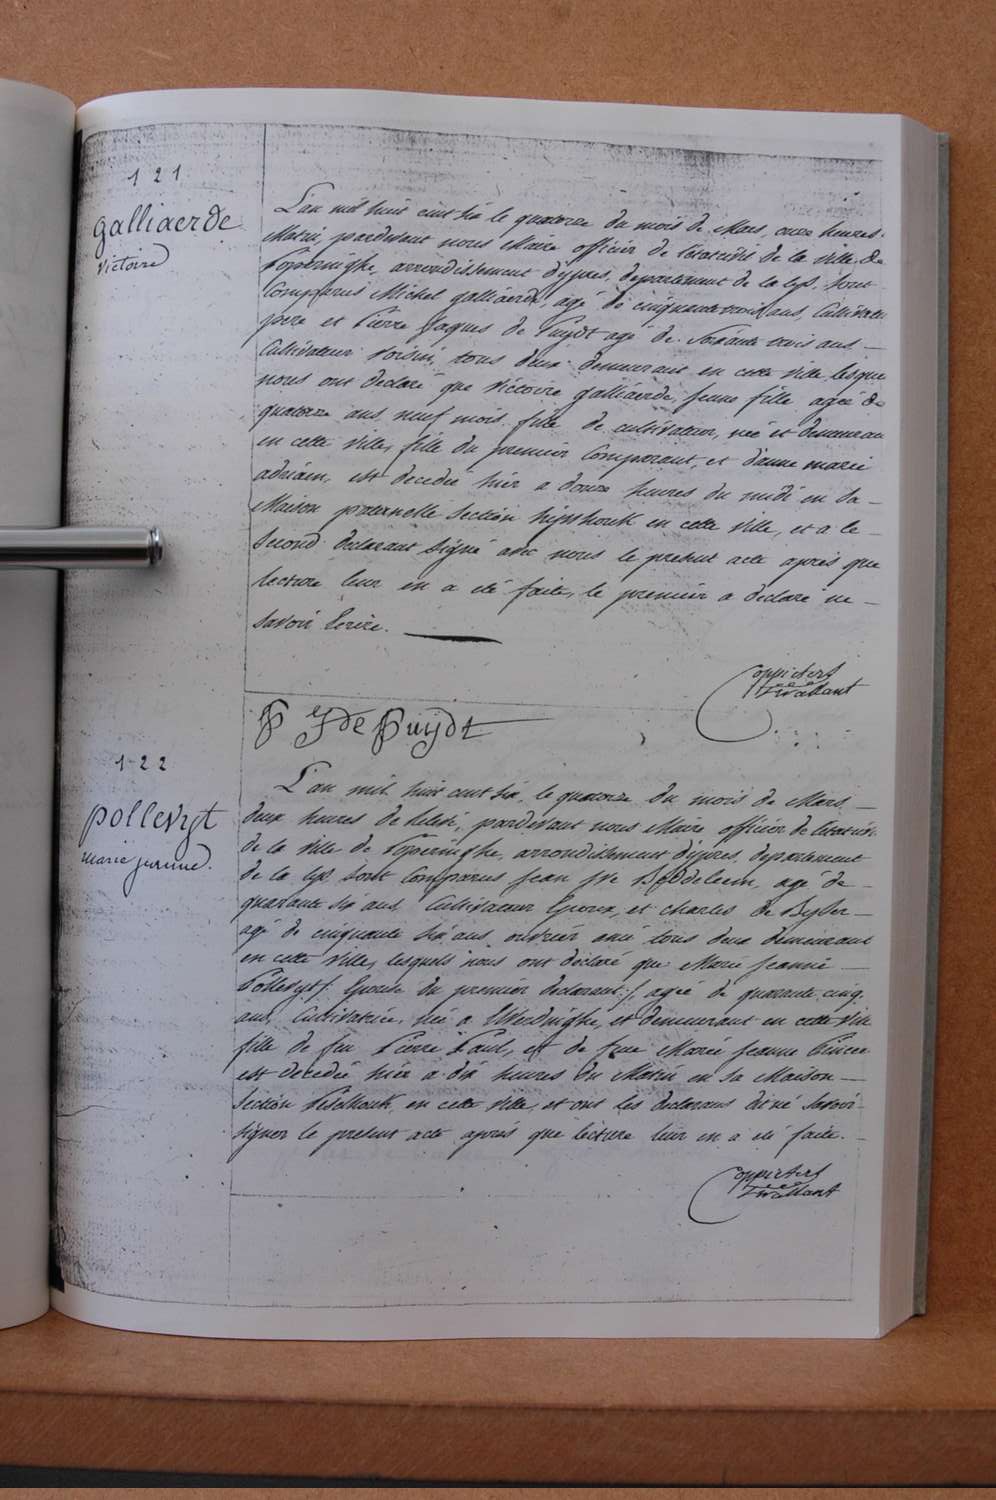 121
galliaerde
victoire
L'an mil huit cent six le quatorze du mois de Mars, onze heures
Matin, pardevant nous Maire officier de l'etatcivil de la ville de
Poperinghe, arrondissement d'ypres, departement de la lys, sont
Comparus Michel galliaerde, agé de cinquante trois ans, Cultivateur
pere et Pierre Jaques de Puijdt agé de Soixante trois ans
Cultivateur voisin, tous deux demeurant en cette ville lesque
nous ont declaré que Victoire galliaerde, jeune fille ageé de
quatorze ans neuf mois fille de cultivateur, neé et demeuran
en cette ville, fille du premier Comparant, et d'anne marie
adriaen, est decedeé hier a douze heures du midi en sa
Maison paternelle section hipshouk en cette ville, et a le
Second declarant signé avec nous le present acte après que
lecture leur en a eté faite, le premier a declaré ne
savoir Ecrire.
Coppieters
Stvaillant
P J de Puijdt
122
pollevyt
marie jeanne.
L'an mil huit cent six, le quatorze du mois de Mars
deux heures de relevé, pardevant nous Maire officier de l'etatcivil
de la ville de Poperinghe, arrondissement d'ypres, departement
de la lys sont Comparus Jean Bte Beddeleem, agé de
quarante six ans Cultivateur Epoux, et charles de Byser
agé de cinquante six ans, ouvrier ami tous deux demeurant
en cette ville, lesquels nous ont déclaré que Marie Jeanne
Pollevyt /: Epouse du premier declarant :/, ageé de quarante cinq
ans, Cultivatrice, neé a Westvleteren, et demeurant en cette ville
fille de feu Pierre Paul, et de feue Marie Jeanne
est decedeé hier a dix heures du Matin en sa Maison
Section Peselhouk, en cette ville, et ont les declarans dit né savoir
signer le present acte après que lecture leur en a eté faite.
Coppieters
Stvaillant